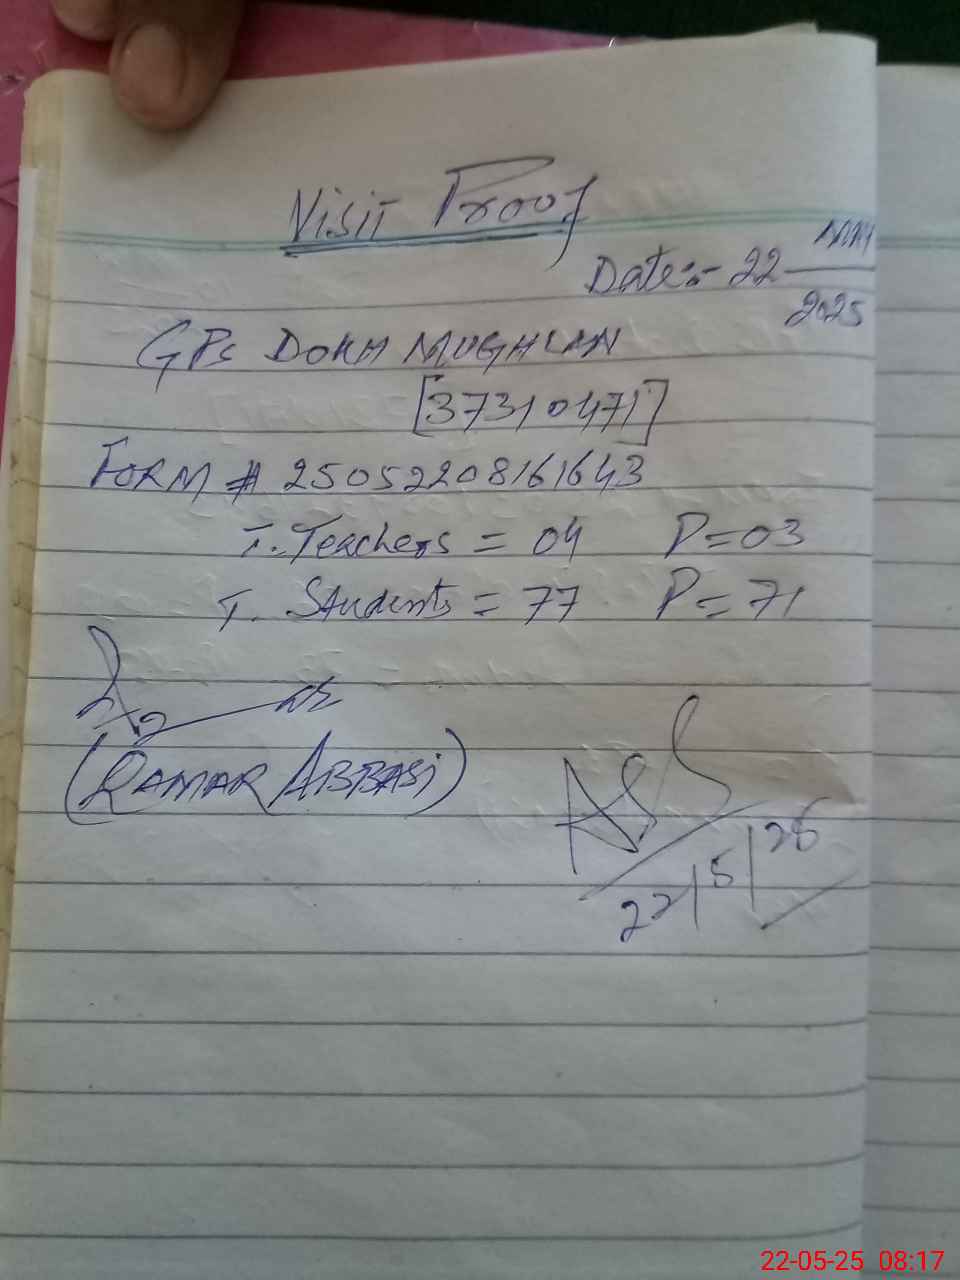 Visit Proof
Date:- 22 MAY
2025
GPS DOKH MUGHLAN
[37310471]
FORM # 25052208161643
T. Teachers = 04 P=03
T. Students = 77 P=71
(QAMAR ABBASI)
22/5/25
22-05-25 08:17